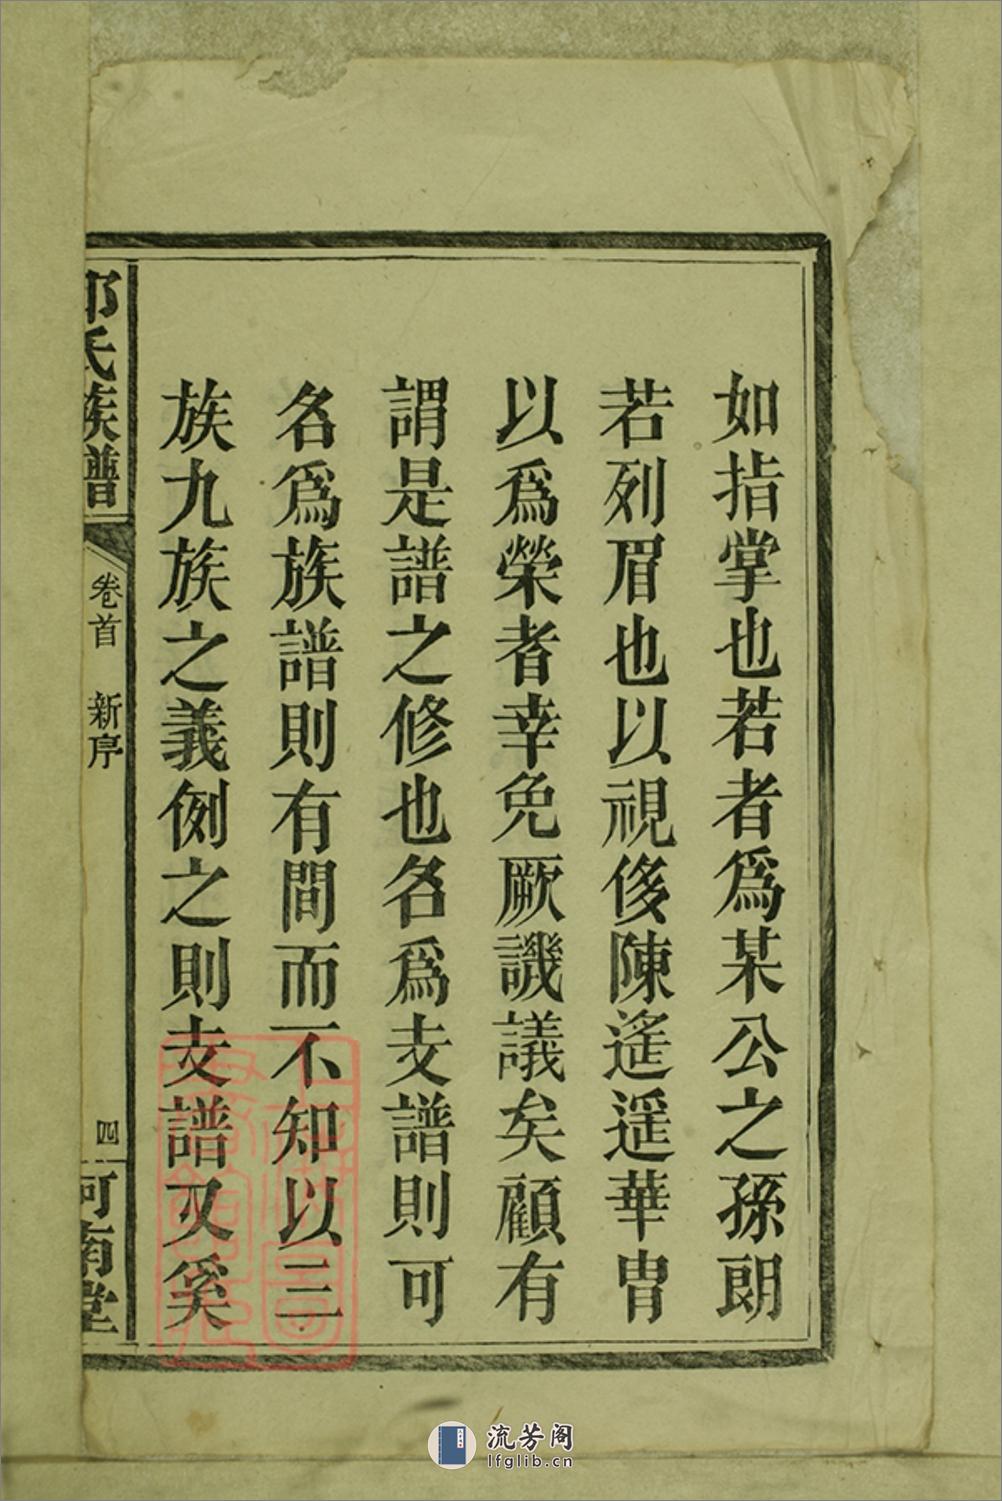 如指掌也若者爲某公之孫朗
若列眉也以視侈陳遙遙華胄
以爲榮者幸免厥譏議矣顧有
謂是譜之修也名爲支譜則可
名爲族譜則有間而不知以三
族九族之義例之則支譜又奚
氏族譜
卷首 新序
四
河南堂
流芳阁
lfglib.cn